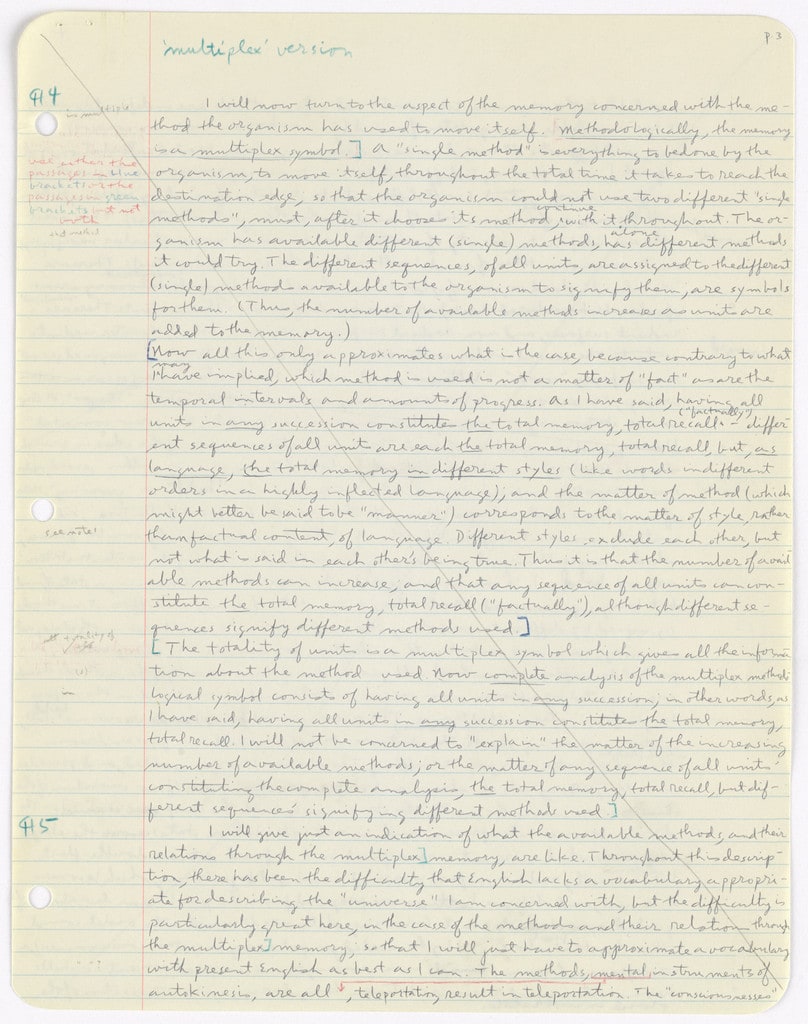 p 3
'multiplex' version
¶4
I will now turn to the aspect of the memory concerned with the me-
thod the organism has used to move itself. Methodologically, the memory
is a multiplex symbol.] A "single method" is everything to be done by the
organism, to move itself, throughout the total time it takes to reach the
destination edge, so that the organism could not use two different "single
continue
methods", must, after it chooses its method, with it throughout. The or-
alone
ganism has available different (single) methods, has different methods
it could try. The different sequences, of all units, are assigned to the different
(single) methods available to the organism to signify them, are symbols
for them. (Thus, the number of available methods increases as units are
added to the memory.)
use either the
passages in blue
brackets or the
passages in green
brackets but not
both
[Now all this only approximates what is the case, because contrary to what
may
I have implied, which method is used is not a matter of "fact" as are the
temporal intervals and amounts of progress. As I have said, having all
("factually")
units in any succession constitutes the total memory, total recall - differ-
ent sequences of all units are each the total memory, total recall, but, as
language, the total memory in different styles (like words in different
orders in a highly inflected language); and the matter of method (which
might better be said to be "manner") corresponds to the matter of style, rather
than factual content, of language. Different styles exclude each other, but
not what is said in each other's being true. Thus it is that the number of avail-
able methods can increase, and that any sequence of all units can con-
stitute the total memory, total recall ("factually"), although different se-
quences signify different methods used.]
see notes
[The totality of units is a multiplex symbol which gives all the informa-
tion about the method used. Now complete analysis of the multiplex methodo-
logical symbol consists of having all units in any succession; in other words, as
I have said, having all units in any succession constitutes the total memory,
total recall. I will not be concerned to "explain" the matter of the increasing
number of available methods; or the matter of any sequence of all units'
constituting the complete analysis, the total memory, total recall, but dif-
ferent sequences' signifying different methods used.]
¶5
I will give just an indication of what the available methods, and their
relations through the multiplex] memory, are like. Throughout this descrip-
tion, there has been the difficulty that English lacks a vocabulary appropri-
ate for describing the "universe" I am concerned with, but the difficulty is
particularly great here, in the case of the methods and their relations through
the multiplex] memory, so that I will just have to approximate a vocabulary
with present English as best as I can. The methods, mental instruments of
autokinesis, are all , teleportation, result in teleportation. The "consciousnesses"